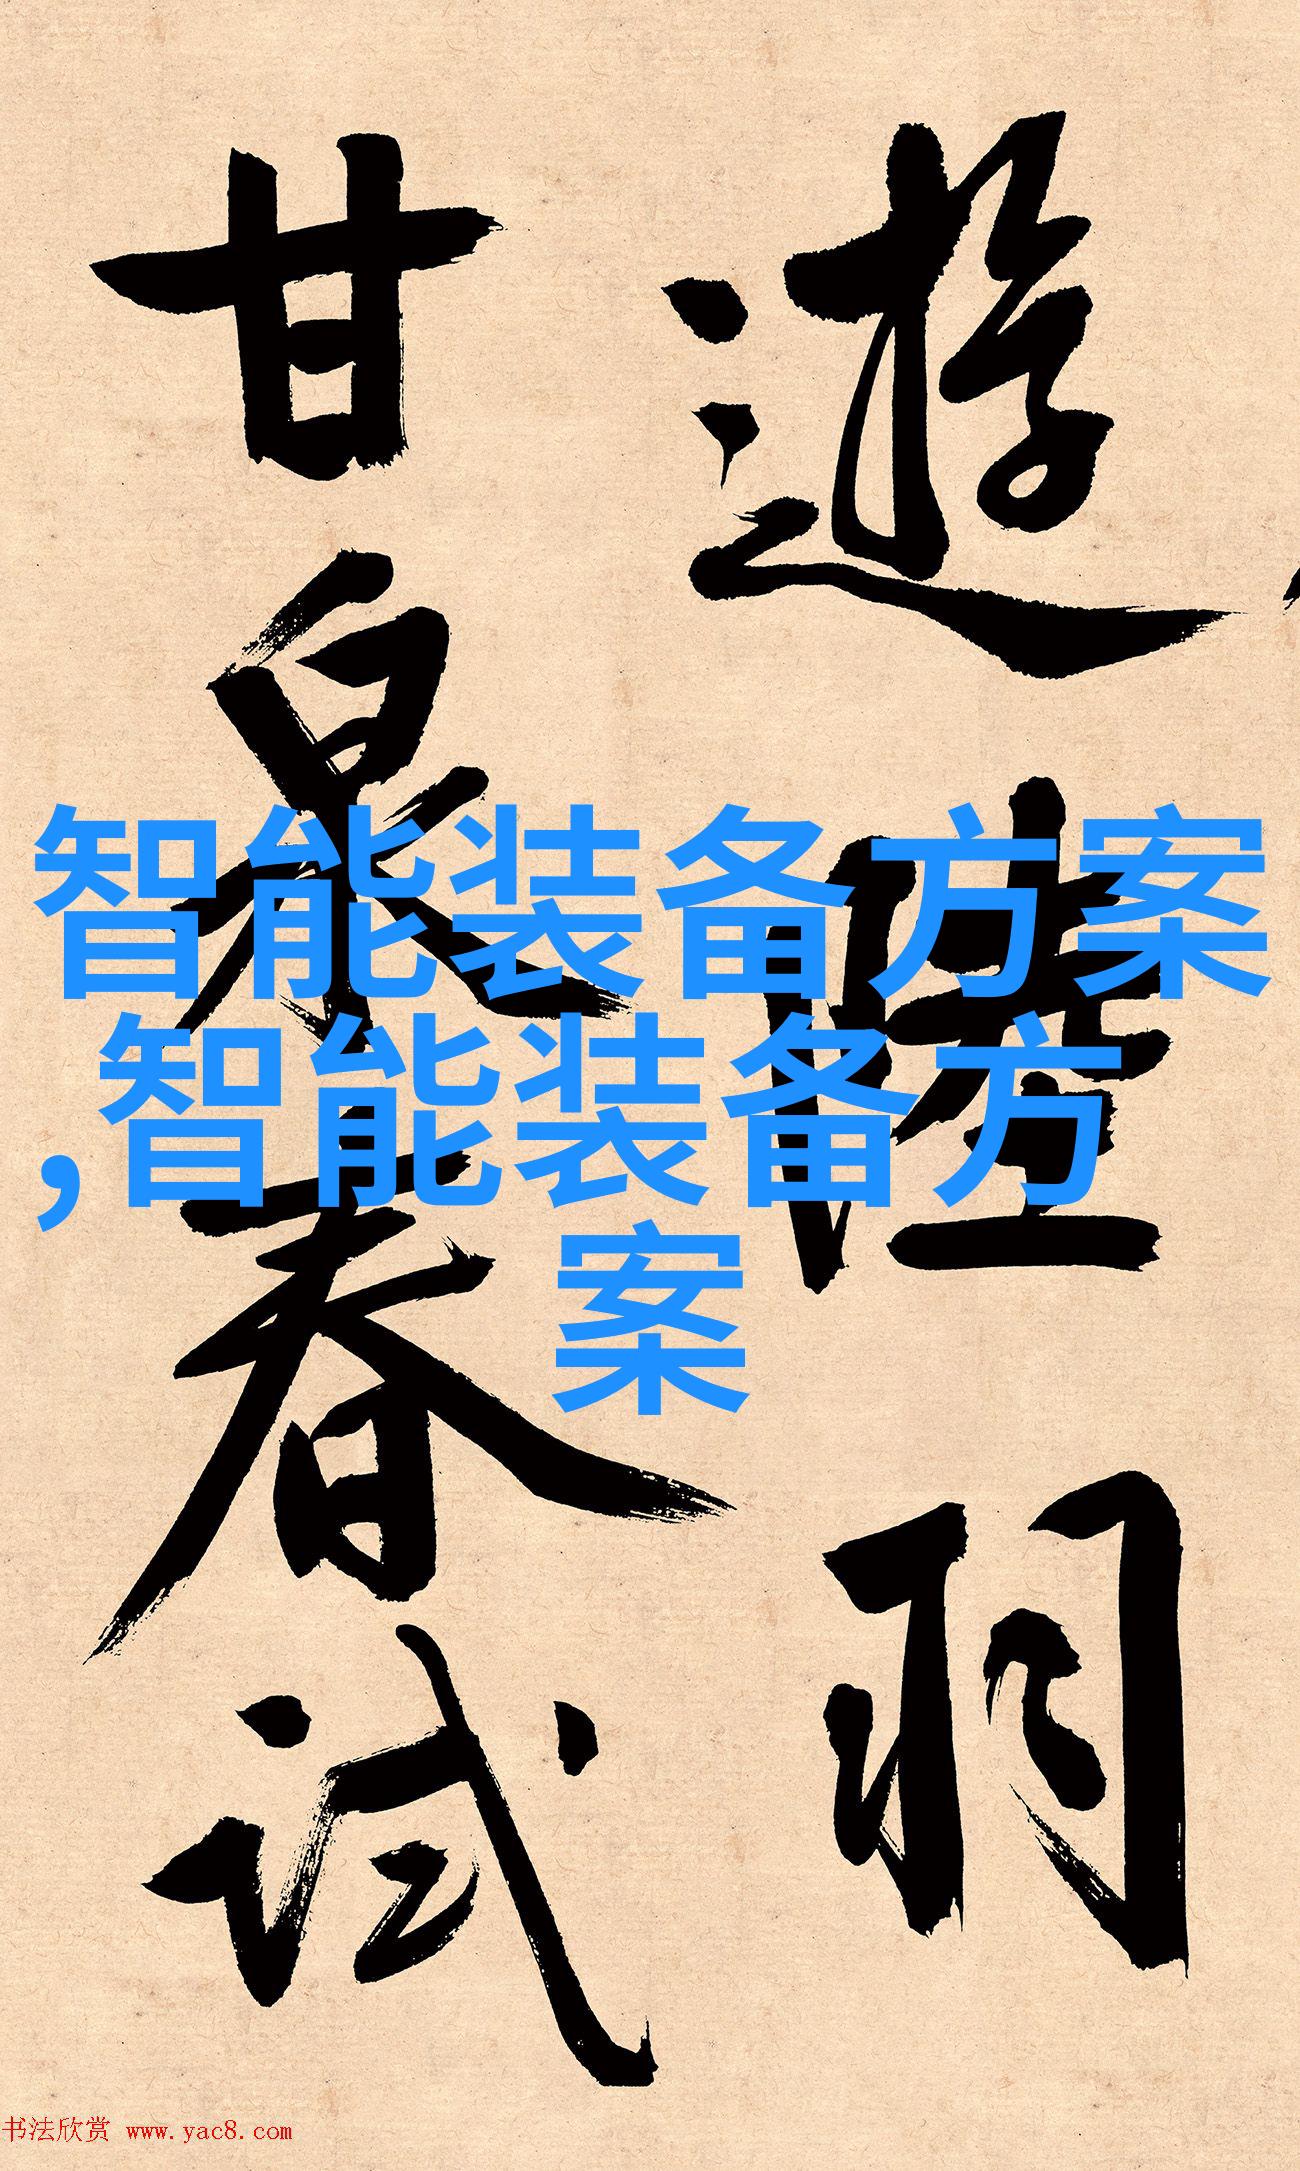 遊陸羽
甘泉春試
智能装备方案
,智能装备方
案
书法欣赏 www.yac8.com